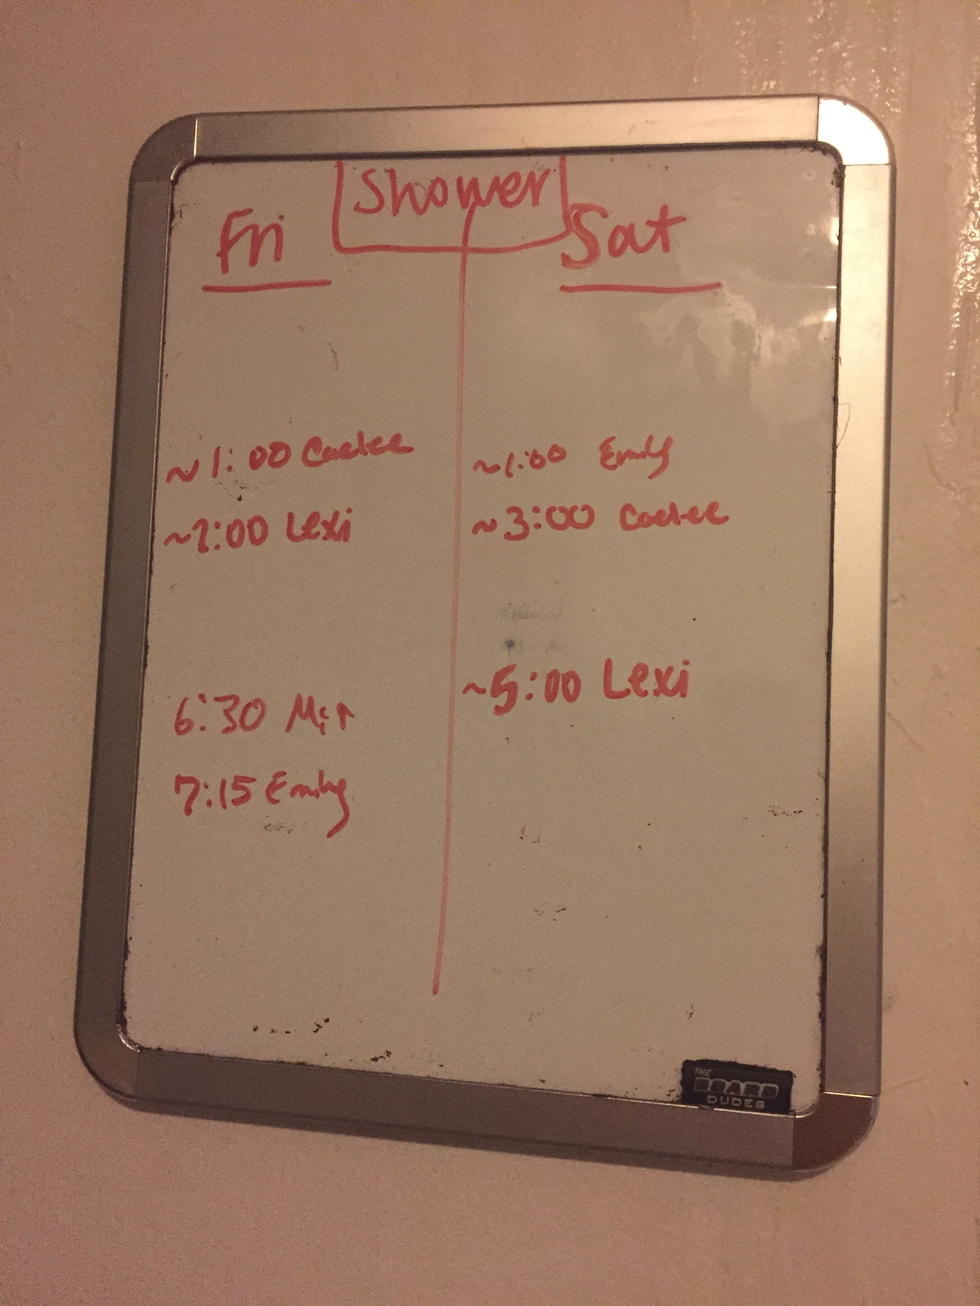 Shower
Fri
~1:00
~2:00 Lexi
6:30
7:15 Emily
Sat
~1:00 Emily
~3:00
~5:00 Lexi
THE
BOARD
DUDES